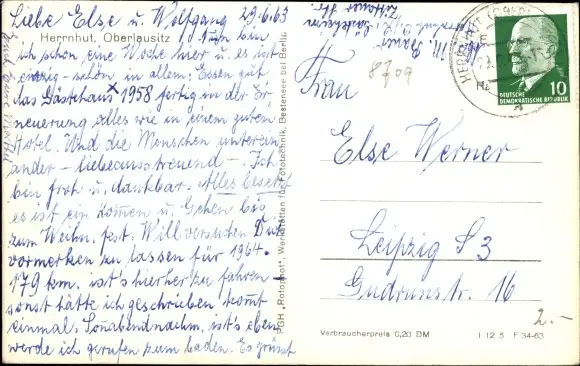 Liebe Else u. Wolfgang 29.6.63
Herrnhut, Oberlausitz
Nun bin
ich schon eine Woche hier u. es ist
einzig-schön in allem: Essen gut
das Gästehaus x 1958 fertig in der Er
neuerung alles wie in einem guten
Hotel. Und die Menschen unterein
ander - liebeausstreuend - Ich
bin froh u. dankbar. Alles besetzt
es ist ein Kommen u. Gehen bis
zum Weihn. fest. Will versuchen Dich
vormerken zu lassen für 1964.
179 km. ist's hierher zu fahren
sonst hätte ich geschrieben komt
einmal. Sonabendnachm. ist's eben
werde ich gerufen zum baden. Es grüsst
PGH „Rotophot", Werkstätten für Fototechnik, Bestensee bei Berlin
8709
DEUTSCHE
DEMOKRATISCHE REPUBLIK
10
Frau
Else Werner
Leipzig S 3
Gudrunstr. 16
2.-
Verbraucherpreis 0,20 DM
I 12 5 F 34-63